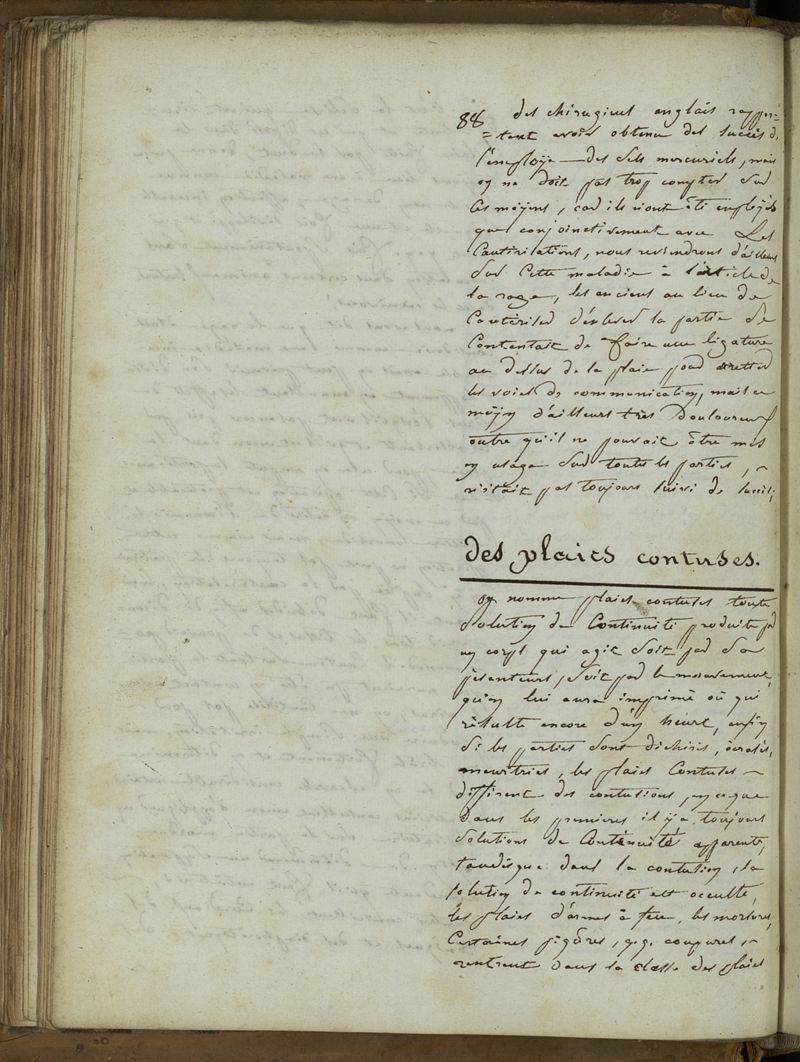 88 des chirugiens anglais rappor=
=tent avoir obtenu des succès de
l'employe des sels mercuriels, mais
on ne doit pas trop compter sur
ces moyens, car ils n'ont été employés
que conjoinctivement avec Les
Cautérisations, nous reviendrons d'ailleurs
sur Cette maladie à l'article de
la rage, les anciens au lieu de
Cautériser d'enlever la partie se
Contentait de faire une ligature
au dessus de la plaie pour arretter
les voies de communication, mais ce
moyen d'ailleurs très Douloureux
outre qu'il ne pouvait être mis
en usage sur toutes les parties,
n'était pas toujours suivi de succès;
des plaies contuses.
on nomme plaies contuses toute
solution de Continuité produite par
un corps qui agit soit par sa
pesenteur, soit par le mouvement
qu'on lui aura imprimé ou qui
résulte encore d'un heurt, enfin
si les parties sont dichirés, écrasés,
meurtries, les plaies Contuses
diffèrent des contusions, en ce que
dans les premieres il y a toujours
solutions de Continuité apparente,
tandisque dans la contusion, la
solution de continuité est occulte,
les plaies d'armes à feu, les morsures,
Certaines piqûres, q.q. coupures,
rentrent dans la classe des plaies